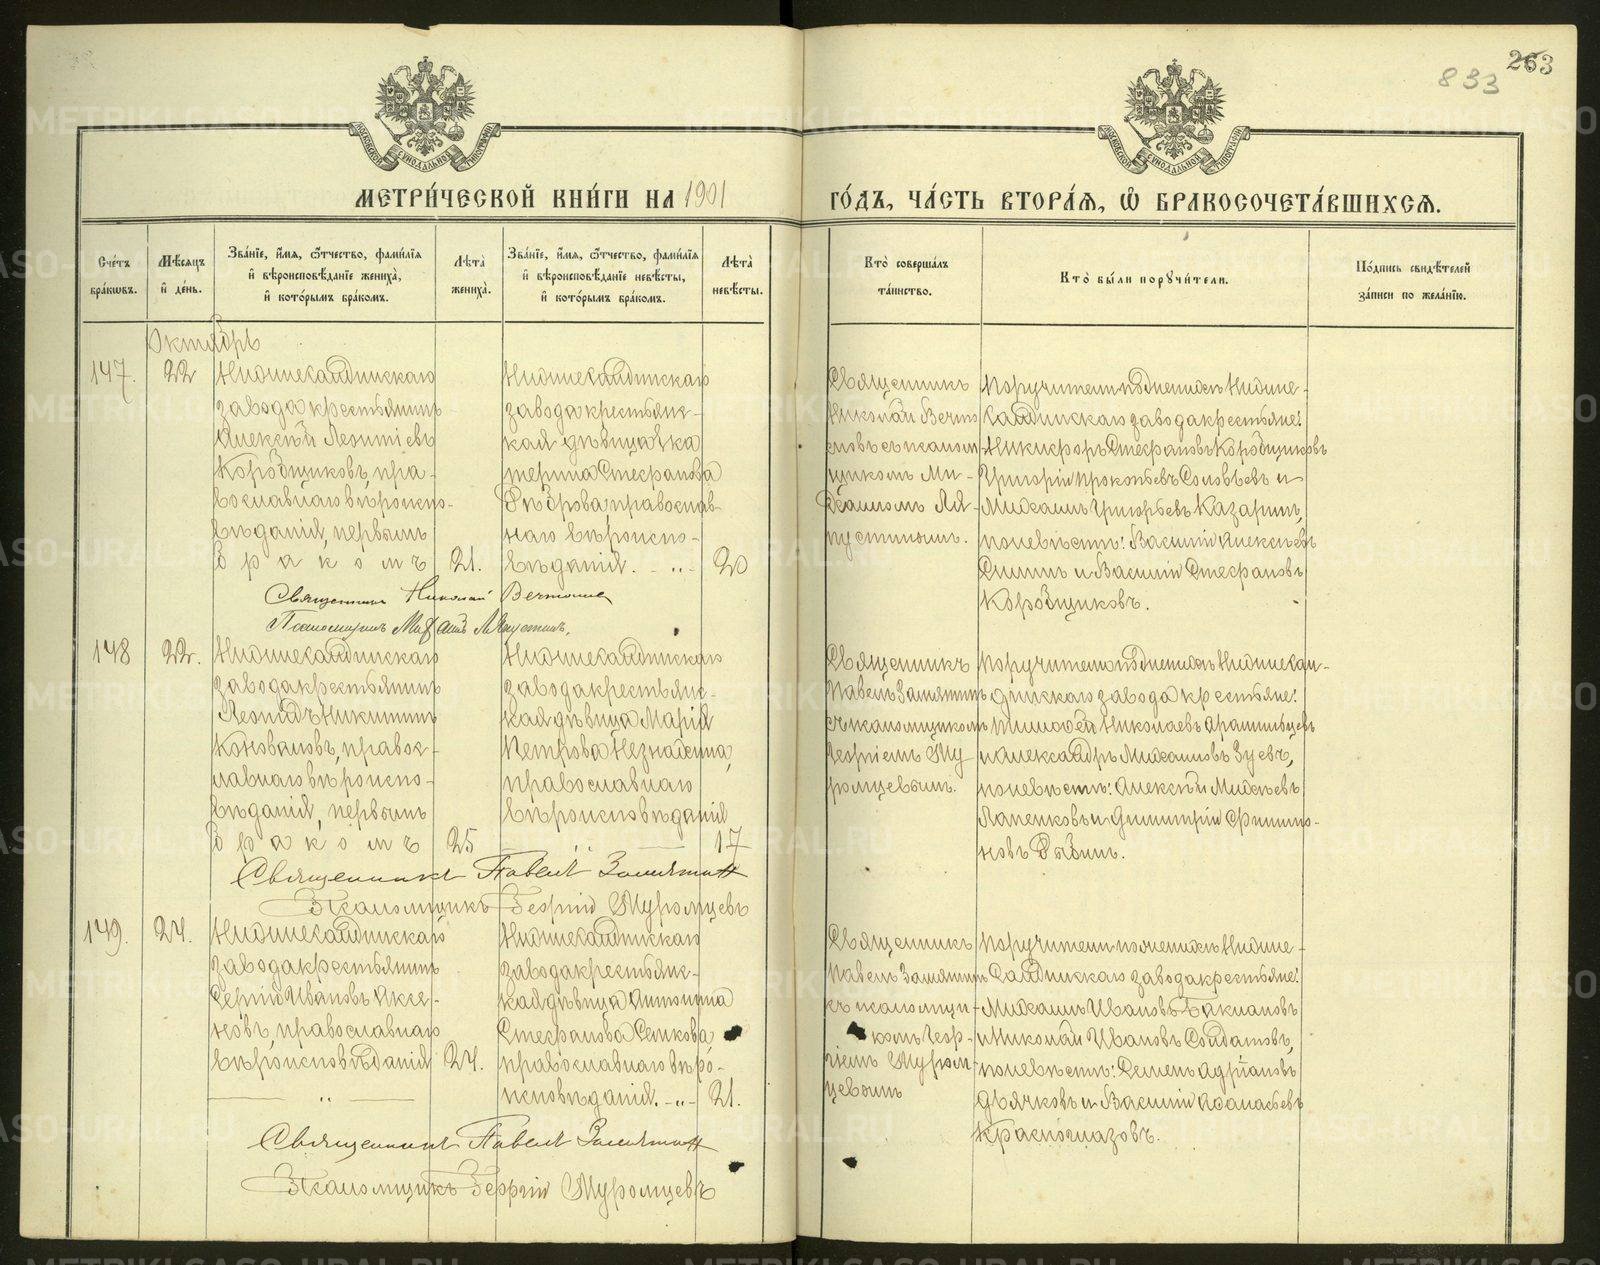 833
263
МОСКОВСКОЙ СѴНОДАЛЬНОЙ ТИПОГРАФІИ
МОСКОВСКОЙ СѴНОДАЛЬНОЙ ТИПОГРАФІИ
МЕТРИ́ЧЕСКОЙ КНИ́ГИ НА 1901 ГО́ДЪ, ЧА́СТЬ ВТОРА́Я, Ѡ БРАКОСОЧЕТА́ВШИХСЯ.
Сче́тъ
бра́ковъ.
Мѣ́сяцъ
и҆ де́нь.
Зва́нїе, и҆́мя, ѻ҆́тчество, фами́лїя
и҆ вѣроисповѣ́данїе жениха̀,
и҆ кото́рымъ бра́комъ.
Лѣ́та
жениха̀.
Зва́нїе, и҆́мя, ѻ҆́тчество, фами́лїя
и҆ вѣроисповѣ́данїе невѣ́сты,
и҆ кото́рымъ бра́комъ.
Лѣ́та
невѣ́сты.
Кто̀ соверша́лъ
та́инство.
Кто̀ бы́ли поручи́тели.
По́дпись свидѣ́телей
за́писи по жела́нїю.
Октябрь
147.
22
Нижнесалдинскаго
завода крестьянинъ
Алексѣй Леонтіевъ
Коробщиковъ, пра-
вославнаго вѣроиспо-
вѣданія, первымъ
бракомъ
21.
Нижнесалдинскаго
завода крестьянс-
кая дѣвица Ека
терина Стефанова
православ-
наго вѣроиспо-
вѣданія. - „ -
20
Священникъ
Николай
съ псалом-
щикомъ Ми-
хаиломъ Ля-
пустинымъ.
Поручители по женихѣ Нижне-
салдинскаго завода крестьяне:
Никифоръ Стефановъ Коробщиковъ
Григорій Прокопьевъ Соловьевъ и
Михаилъ Григорьевъ Казаринъ,
по невѣстѣ: Василій Алексѣевъ
и Василій Стефановъ
Коробщиковъ.
Священникъ Николай
Псаломщикъ Михаилъ Ляпустинъ.
148
22.
Нижнесалдинскаго
завода крестьянинъ
Леонидъ Никитинъ
Коноваловъ, правос-
лавнаго вѣроиспо-
вѣданія, первымъ
бракомъ
25
Нижнесалдинскаго
завода крестьянс-
кая дѣвица Марія
Петрова
православнаго
вѣроисповѣданія
17
Священникъ
Павелъ Замятинъ
съ псаломщикомъ
Георгіемъ Му
ромцевымъ.
Поручители по женихѣ Нижнесал-
динскаго завода крестьяне:
Николаевъ
и Александръ Михаиловъ Зуевъ,
по невѣстѣ: Алексѣй
и Димитрій Филимо-
новъ
Священникъ Павелъ Замятинъ
Псаломщикъ Георгій Муромцевъ
149.
24.
Нижнесалдинскаго
завода крестьянинъ
Сергій Ивановъ Аксе-
новъ, православнаго
вѣроисповѣданія
„
24.
Нижнесалдинскаго
завода крестьянс-
кая дѣвица Антонина
Стефанова
православнаго вѣро-
исповѣданія. - „ -
21.
Священникъ
Павелъ Замятинъ
съ псаломщи-
комъ Геор-
гіемъ Муром-
цевымъ
Поручители по женихѣ Нижне-
салдинскаго завода крестьяне:
Михаилъ Ивановъ Баклановъ
и Николай Ивановъ Солдатовъ,
по невѣстѣ: Семенъ Адріановъ
Дьячковъ и Василій Афанасьевъ
Красноглазовъ.
Священникъ Павелъ Замятинъ
Псаломщикъ Георгій Муромцевъ
METRIKI.GASO-URAL.RU